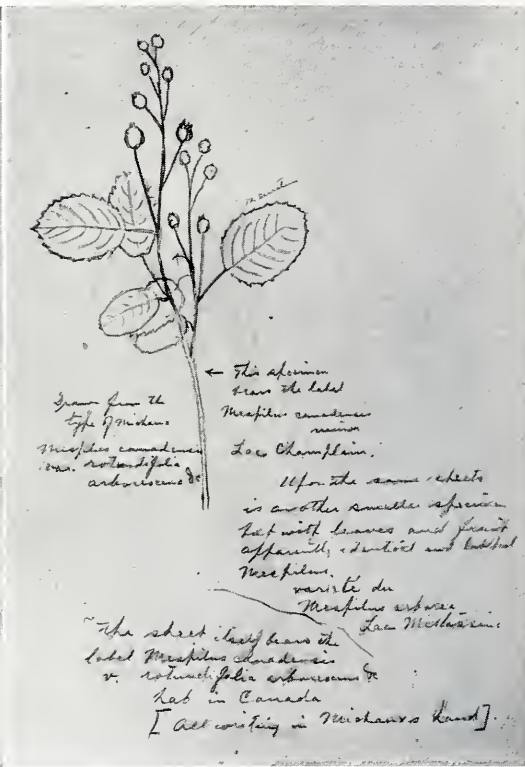 Drawn from the
type of Michaux
Mespilus canadensis
var. rotundifolia
arborescens &c
← This specimen
bears the label
Mespilus canadensis
minor
Lac Champlain.
Upon the same sheets
is another smaller specimen
but with leaves and fruit
apparently identical and labelled
Mespilus.
varieté du
Mespilus arborea
Lac Mistassin.
The sheet itself bears the
label Mespilus canadensis
v. rotundifolia arborescens &c
hab in Canada
[All writing in Michaux's hand].